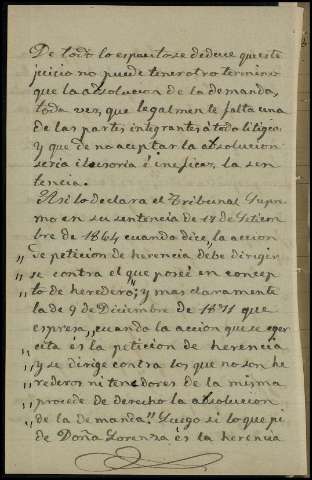 De todo lo espuesto se deduce que este
juicio no puede tener otro termino
que la absolucion de la demanda,
toda vez, que legalmente falta una
de las partes integrantes á todo litigio;
y que de no aceptar la absolucion
seria ilusoria é ineficaz, la sen
tencia.
Asi lo declara el Tribunal Supre
mo en su sentencia de 17 de Setiem
bre de 1864 cuando dice „la accion
„de peticion de herencia debe dirigir
„se contra el que posei en concep
„to de heredero„; y mas claramente
la de 9 de Diciembre de 1871 que
espresa, „cuando la accion que se eger
„cita és la peticion de herencia
„y se dirige contra los que no son he
„rederos ni tenedores de la misma
„procede de derecho la absolucion
„de la demanda." Luego si lo que pi
de Doña Lorenza és la herencia